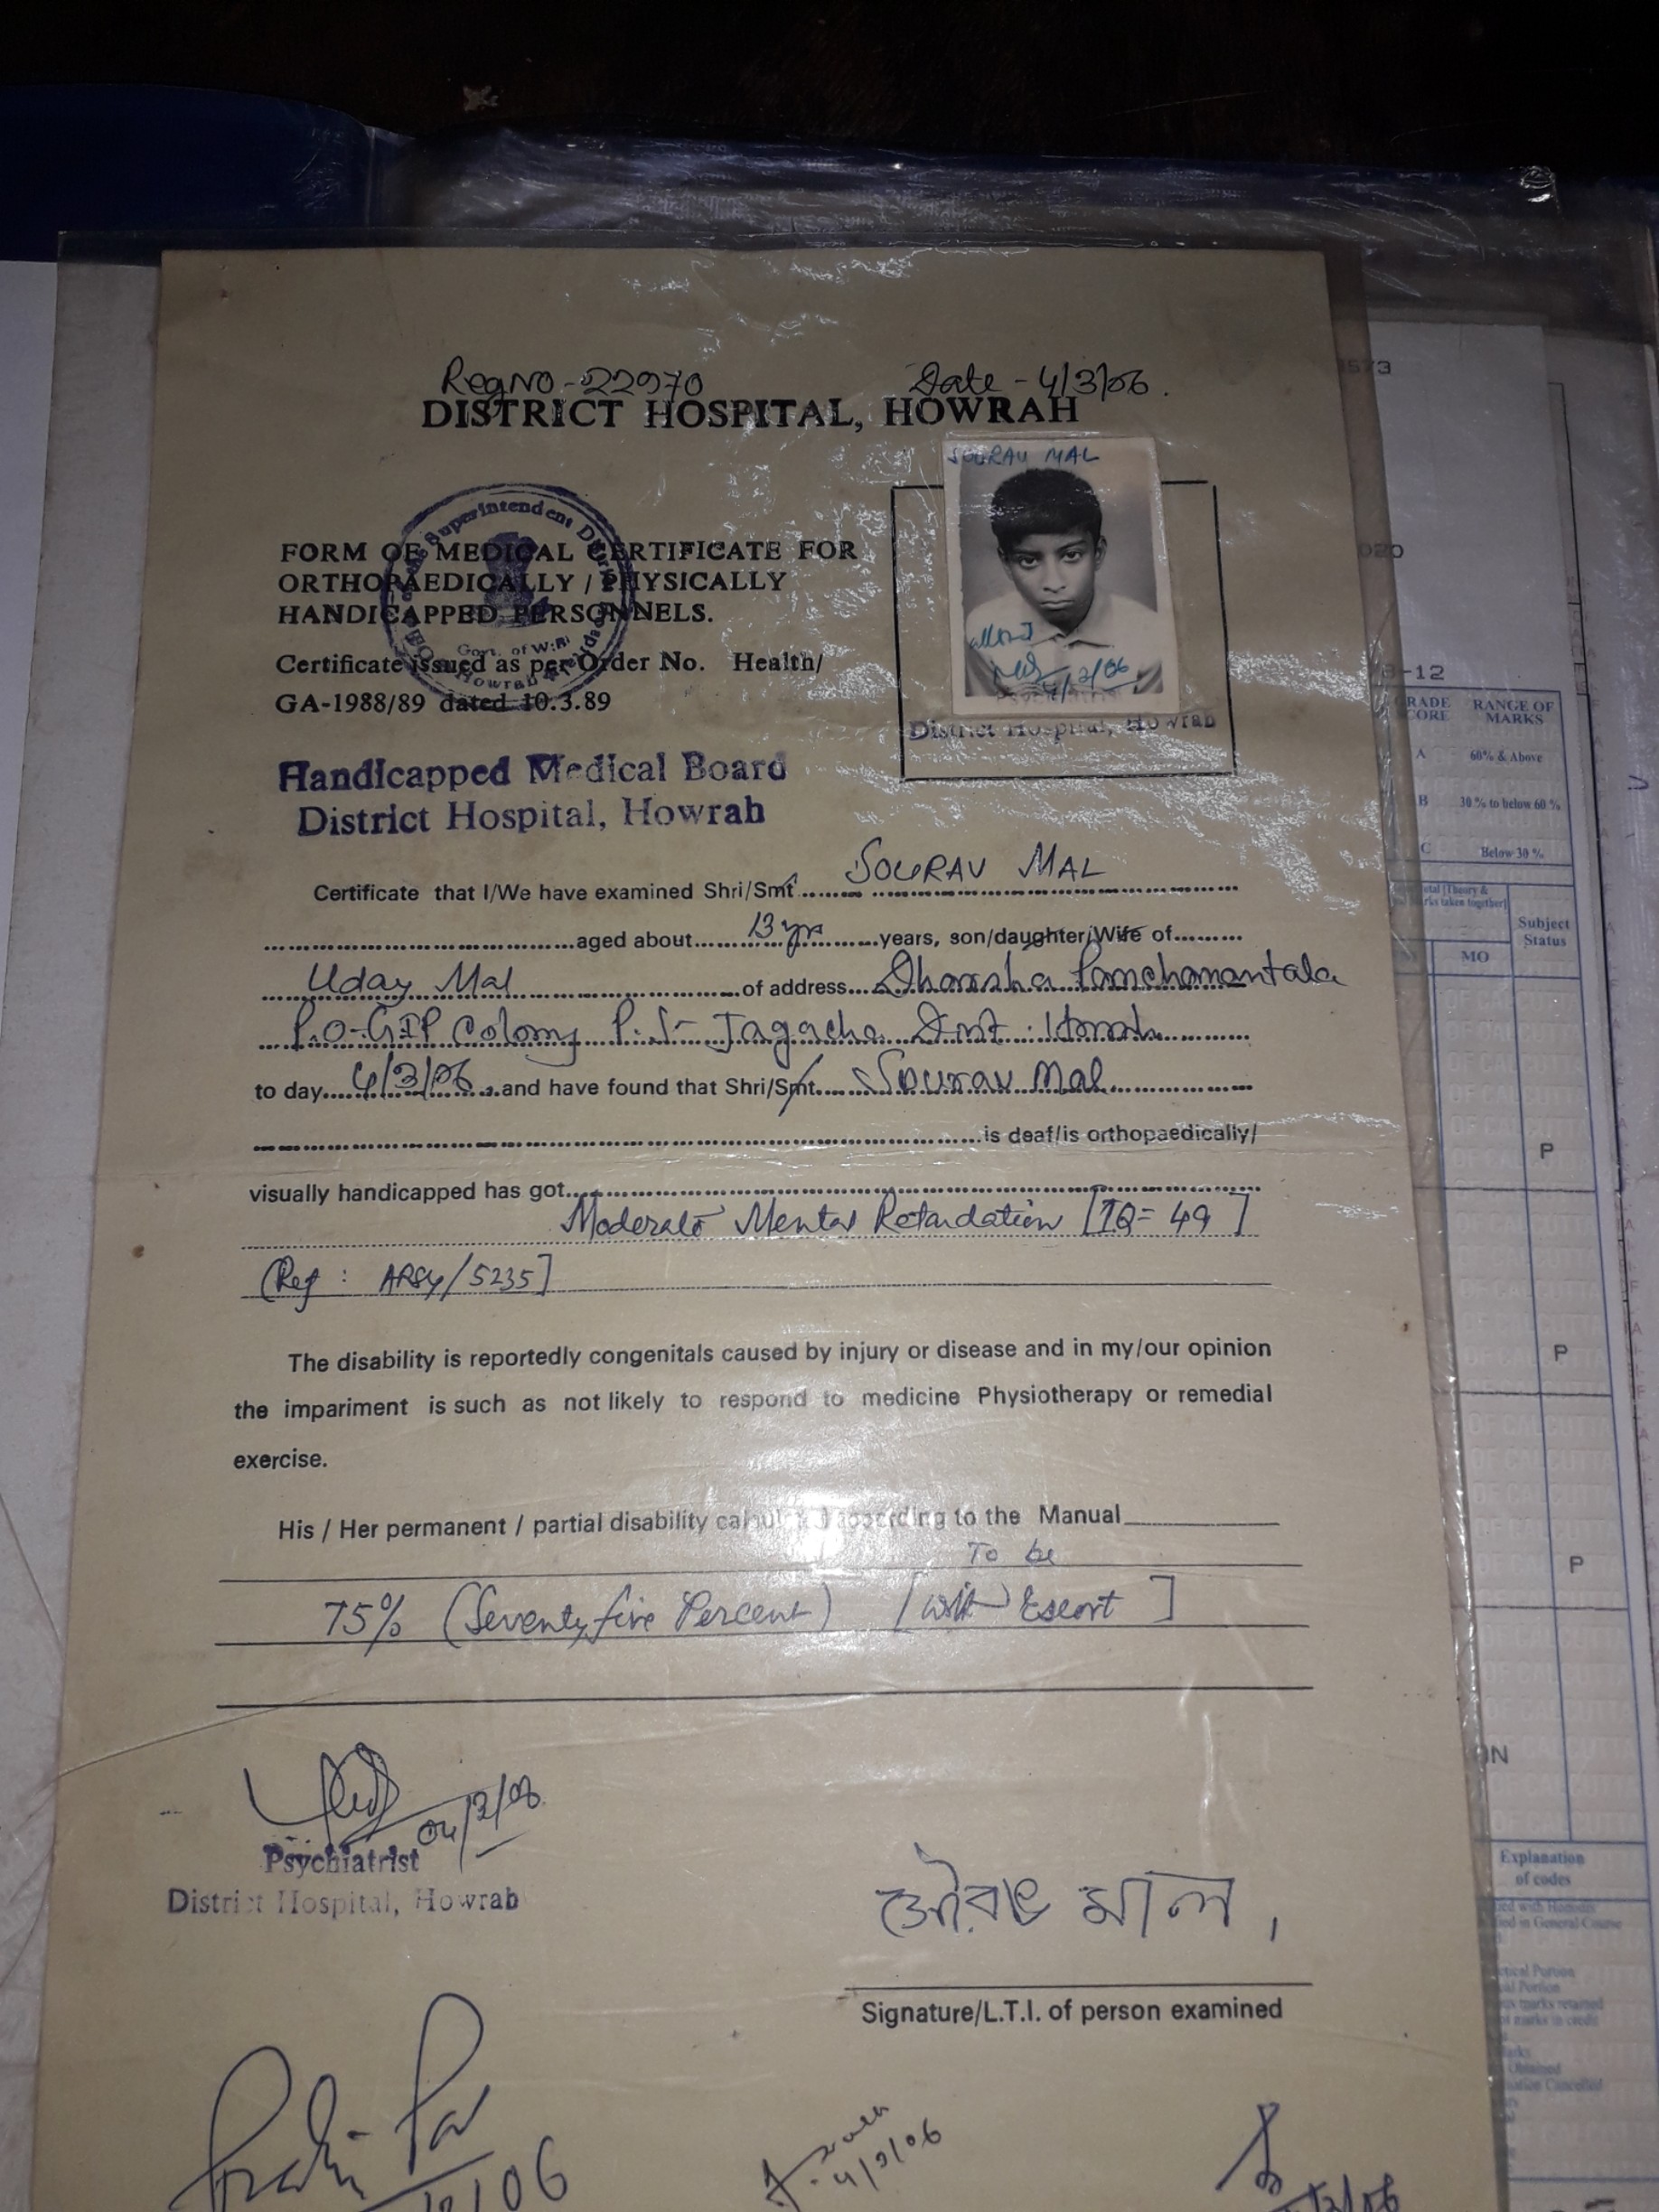 Reg No - 22970 Date - 4/3/06.
DISTRICT HOSPITAL, HOWRAH
SOURAV MAL
FORM OF MEDICAL CERTIFICATE FOR
ORTHOPAEDICALLY / PHYSICALLY
HANDICAPPED PERSONNELS.
Superintendent
Govt. of W.B.
Howrah
Certificate issued as per Order No. Health/
GA-1988/89 dated 10.3.89
4/3/06
District Hospital, Howrah
Handicapped Medical Board
District Hospital, Howrah
Certificate that I/We have examined Shri/Smt. SOURAV MAL
aged about 13 yrs years, son/daughter/Wife of
Uday Mal of address Dharsha Panchanantala
P.O-GIP Colony P.S- Jagacha Dist : Howrah
to day 4/3/06 and have found that Shri/Smt. Sourav Mal
is deaf/is orthopaedically/
visually handicapped has got
Moderate Mental Retardation [IQ= 49]
(Ref : ARSY/5235]
The disability is reportedly congenitals caused by injury or disease and in my/our opinion
the impariment is such as not likely to respond to medicine Physiotherapy or remedial
exercise.
His / Her permanent / partial disability according to the Manual
To be
75% (Seventy five Percent) [with Escort]
04/3/06
Psychiatrist
District Hospital, Howrah
সৌরভ মাল,
Signature/L.T.I. of person examined
4/3/06
GRADE RANGE OF
SCORE MARKS
A 60% & Above
B 30 % to below 60 %
C Below 30 %
Subject
Status
MO
P
P
P
ON
Explanation
of codes